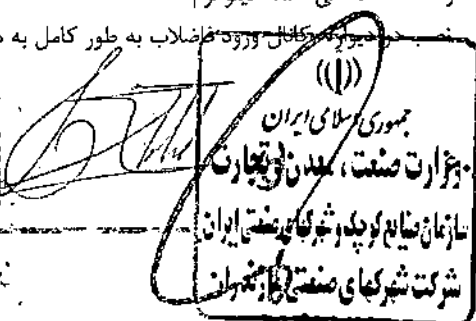 نصب در دیواره کانال ورود فاضلاب به طور کامل به
جمهوری اسلامی ایران
وزارت صنعت، معدن و تجارت
سازمان صنایع کوچک و شهرکهای صنعتی ایران
شرکت شهرکهای صنعتی مازندران